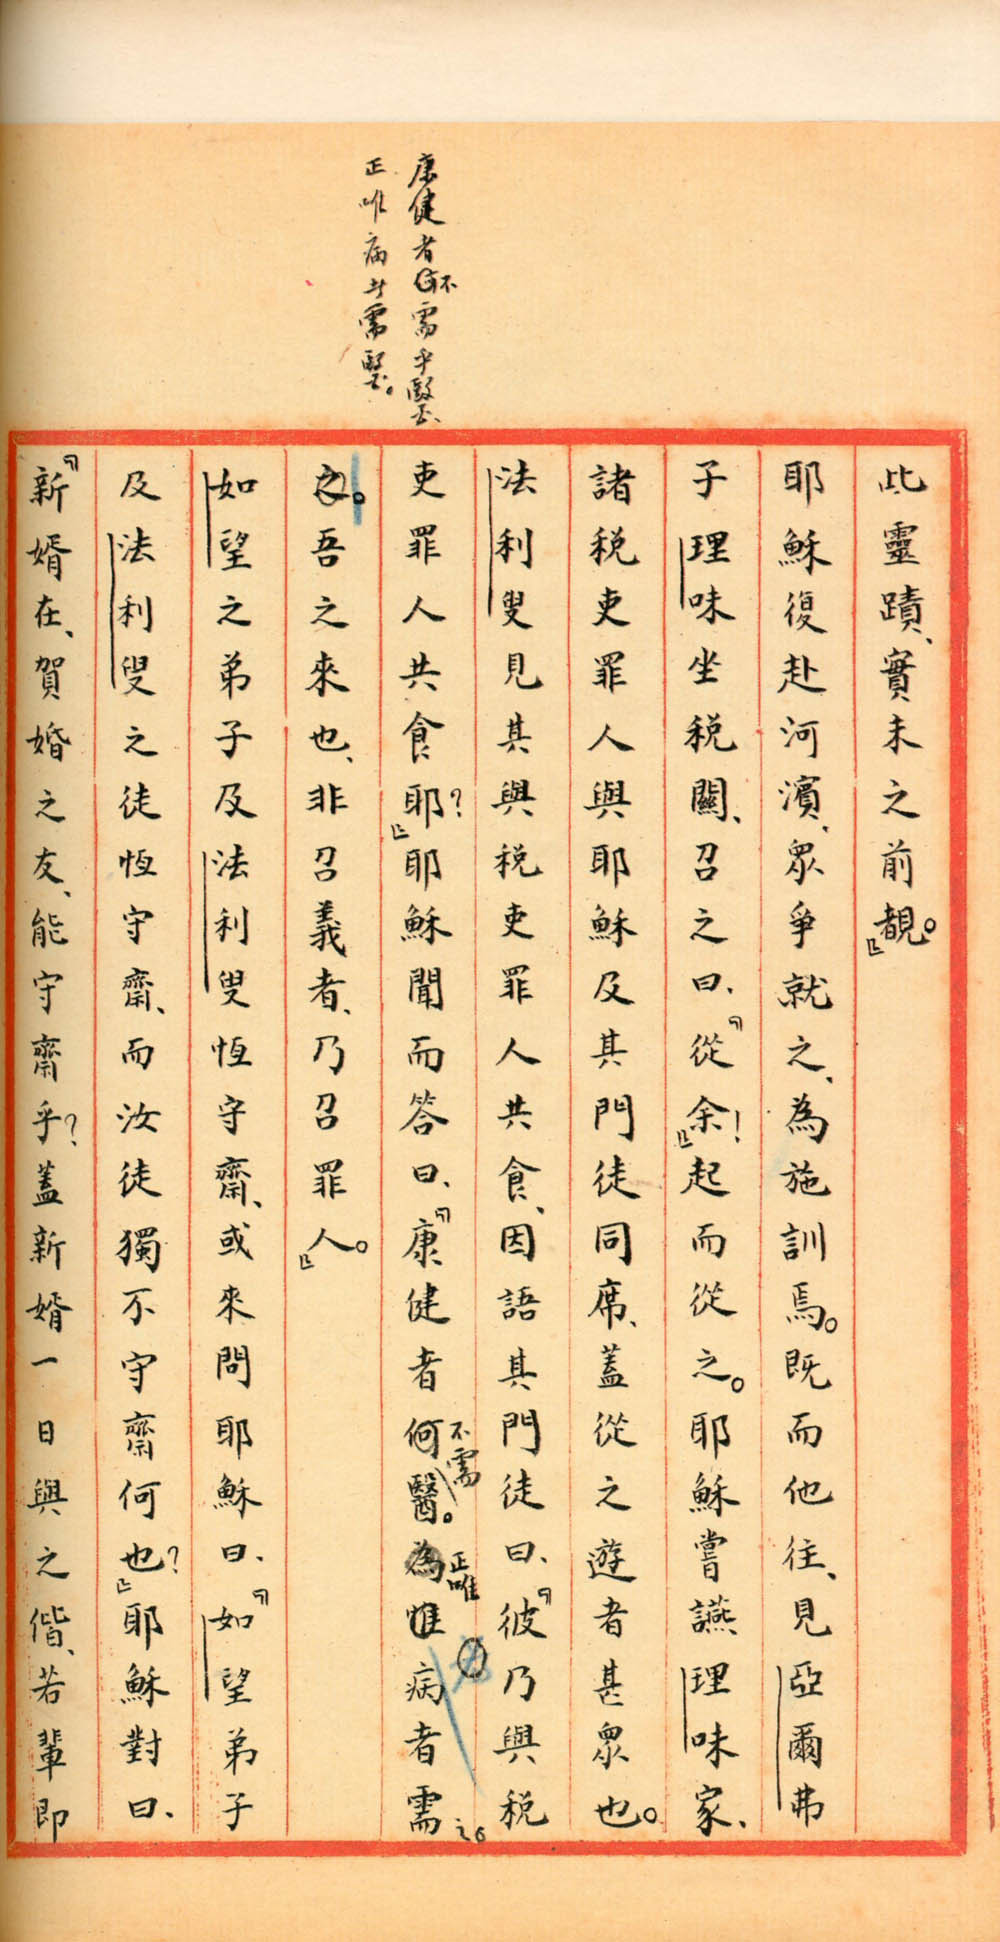 康健者何不需乎醫、
正唯病者需醫。
此靈蹟、實未之前覩。』
耶穌復赴河濱、眾爭就之、為施訓焉。既而他往、見亞爾弗
子理味坐稅關、召之曰、『從余！』起而從之。耶穌嘗讌理味家、
諸稅吏罪人與耶穌及其門徒同席、蓋從之遊者甚眾也。
法利叟見其與稅吏罪人共食、因語其門徒曰、『彼乃與稅
吏罪人共食耶？』耶穌聞而答曰、『康健者何醫。為惟病者需
不需
正唯
之。
之。吾之來也、非召義者、乃召罪人。』
如望之弟子及法利叟恆守齋、或來問耶穌曰、『如望弟子
及法利叟之徒恆守齋、而汝徒獨不守齋何也？』耶穌對曰、
『新婿在、賀婚之友、能守齋乎？蓋新婿一日與之偕、若輩即